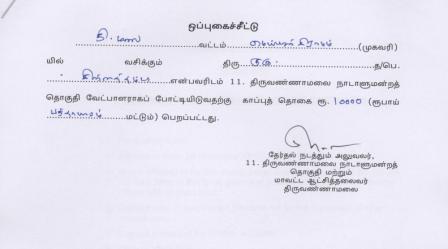 ஒப்புகைச்சீட்டு
தி.மலை வட்டம் (முகவரி
யில் வசிக்கும் திரு த/பெ.
என்பவரிடம் 11. திருவண்ணாமலை நாடாளுமன்றத்
தொகுதி வேட்பாளராகப் போட்டியிடுவதற்கு காப்புத் தொகை ரூ. 10000 (ரூபாய்
பத்தாயிரம் மட்டும்) பெறப்பட்டது.
தேர்தல் நடத்தும் அலுவலர்,
11. திருவண்ணாமலை நாடாளுமன்றத்
தொகுதி மற்றும்
மாவட்ட ஆட்சித்தலைவர்
திருவண்ணாமலை